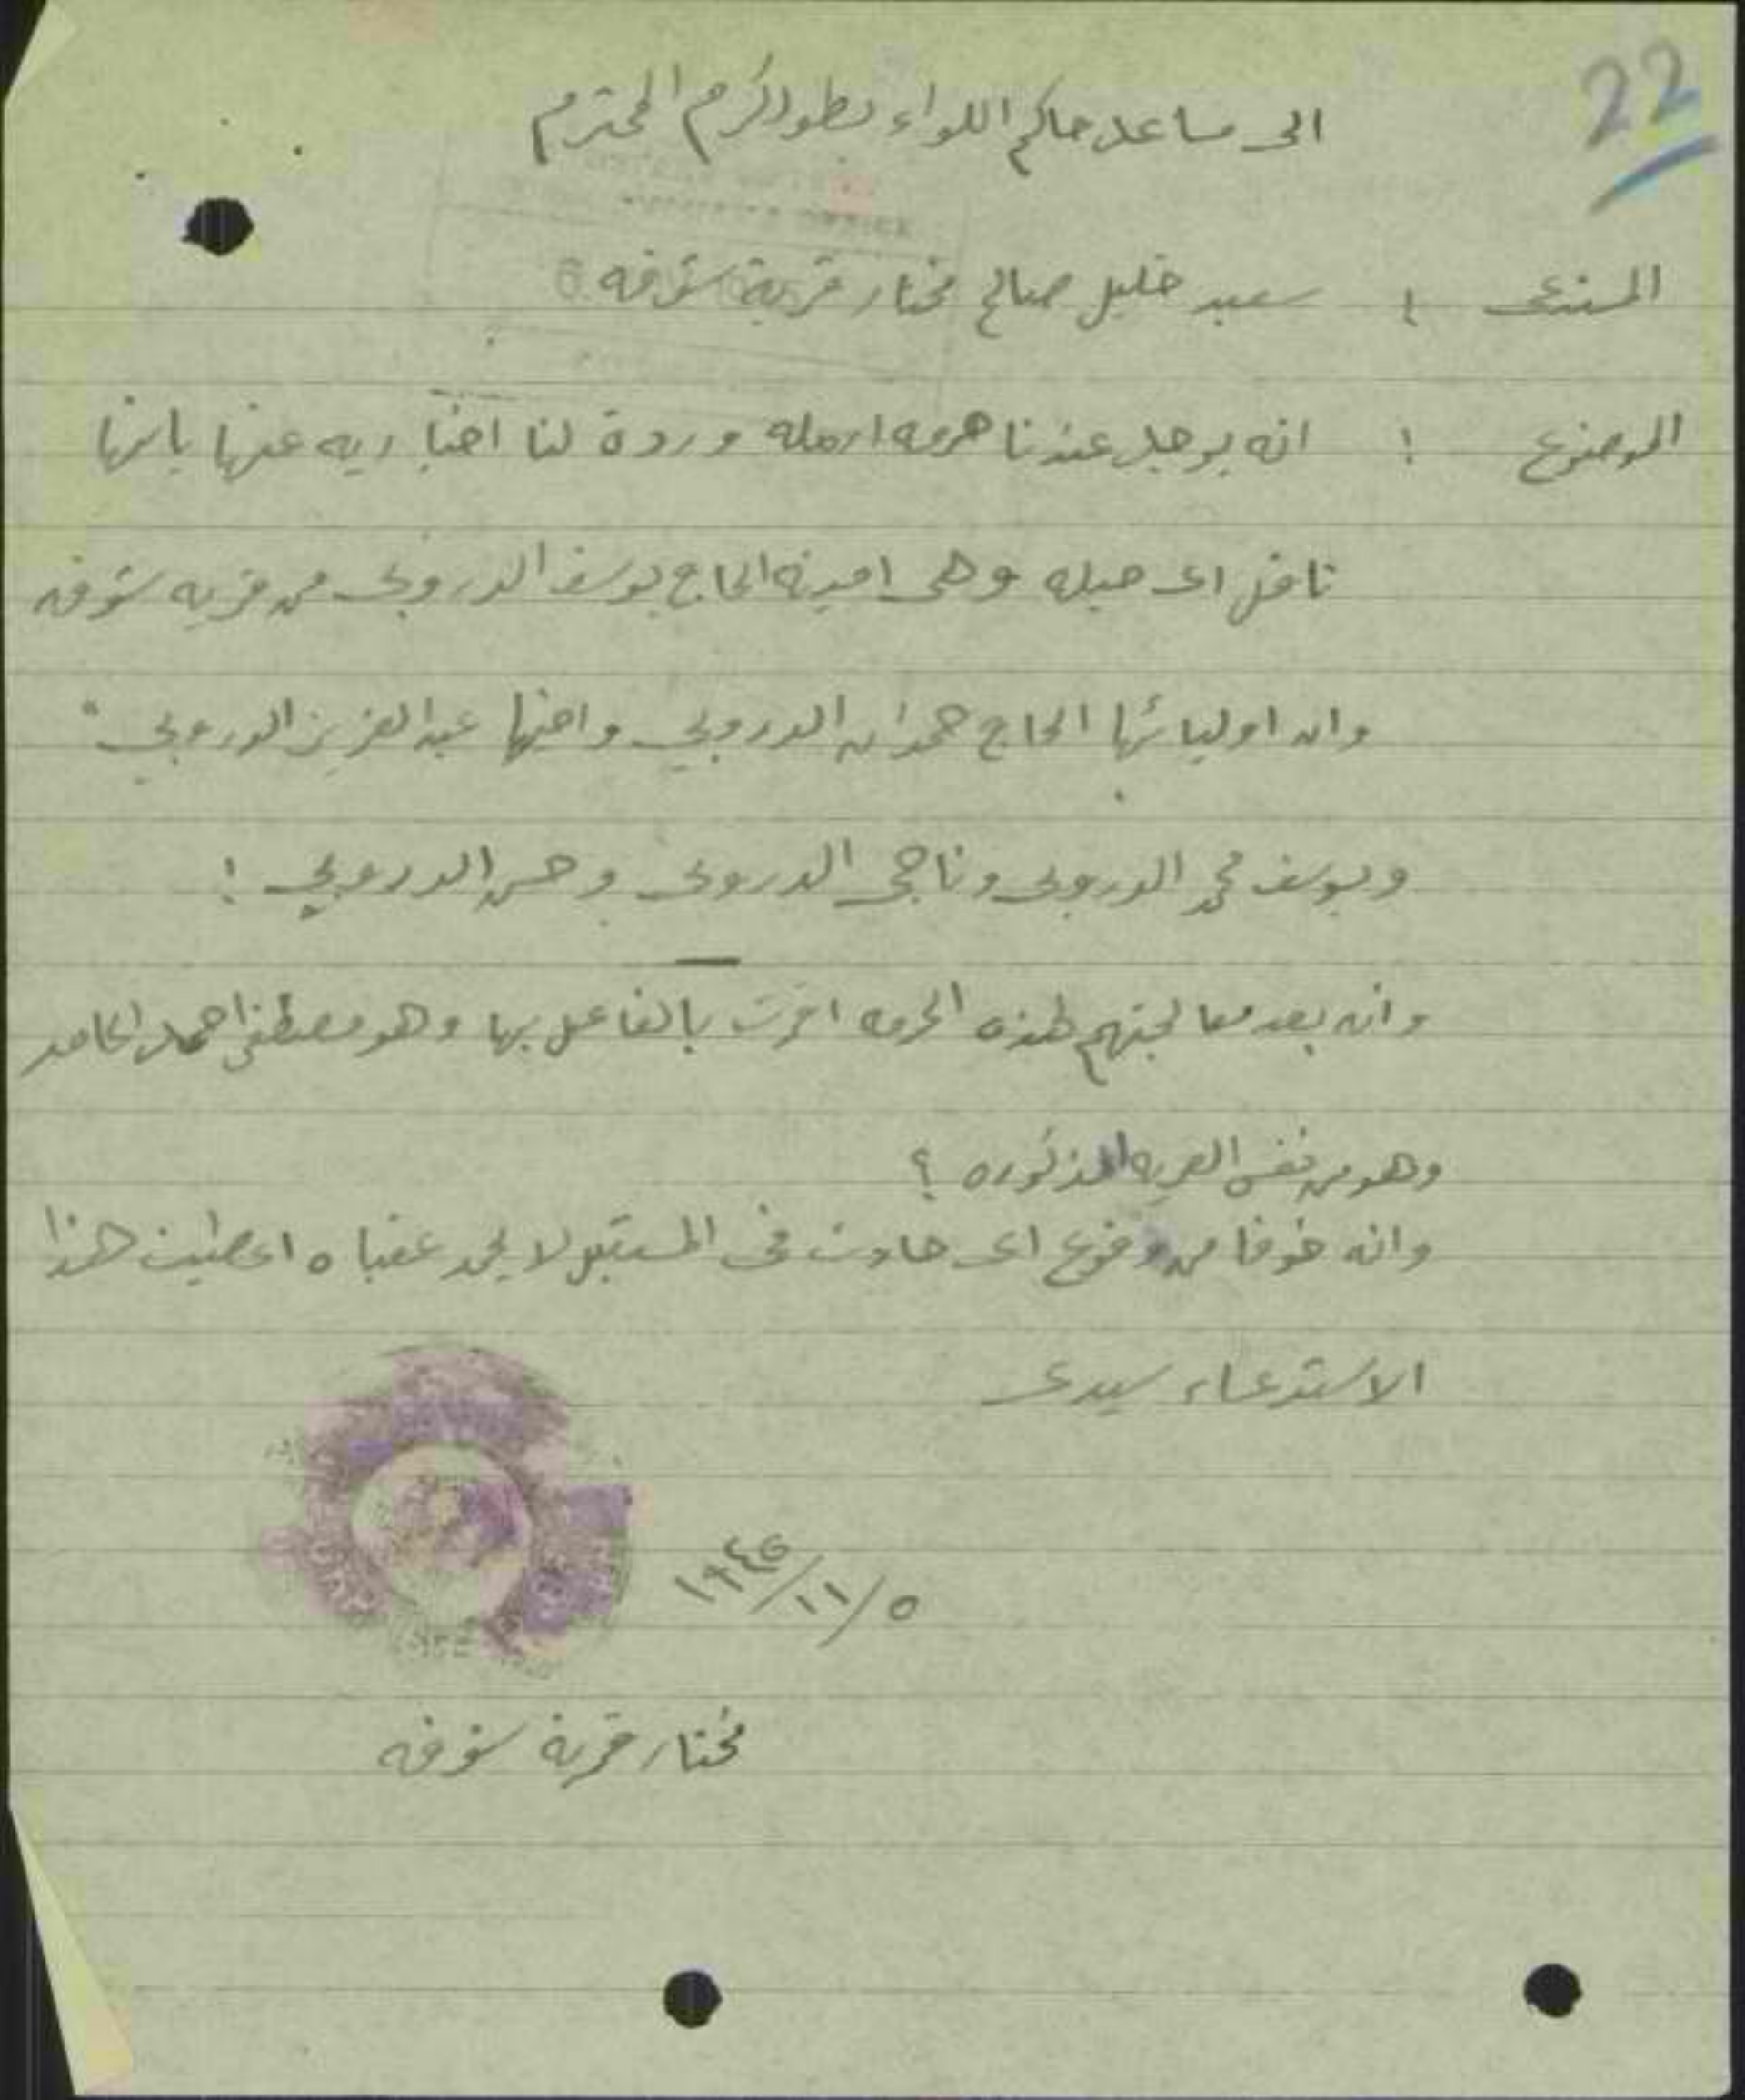 22
الى مساعد حاكم اللواء بطولكرم المحترم
المستدعى : سعيد خليل صالح مختار قرية شوفه
الموضوع : انه يوجد عندنا حرمه ارمله وردة لنا اخباريه عنها بانها
ناقل اى حبله وهى امينه الحاج يوسف الدروبى من قريه شوفه
وان اوليائها الحاج حمدان الدروبي واخيها عبد العزيز الدروبي
ويوسف محمد الدروبى وناجى الدروبى وحسن الدروبي :
وانه بعد معالجتهم لهذه الحرمه اقرت بالفاعل بها وهو مصطفى احمد الحامد
وهو من نفس القريه المذكوره ؟
وانه خوفا من وقوع اى حادث فى المستقبل لا يحمد عقباه اعطيت هذا
الاستدعاء سيدى
٥/١١/١٩٤٥
مختار قرية شوفه